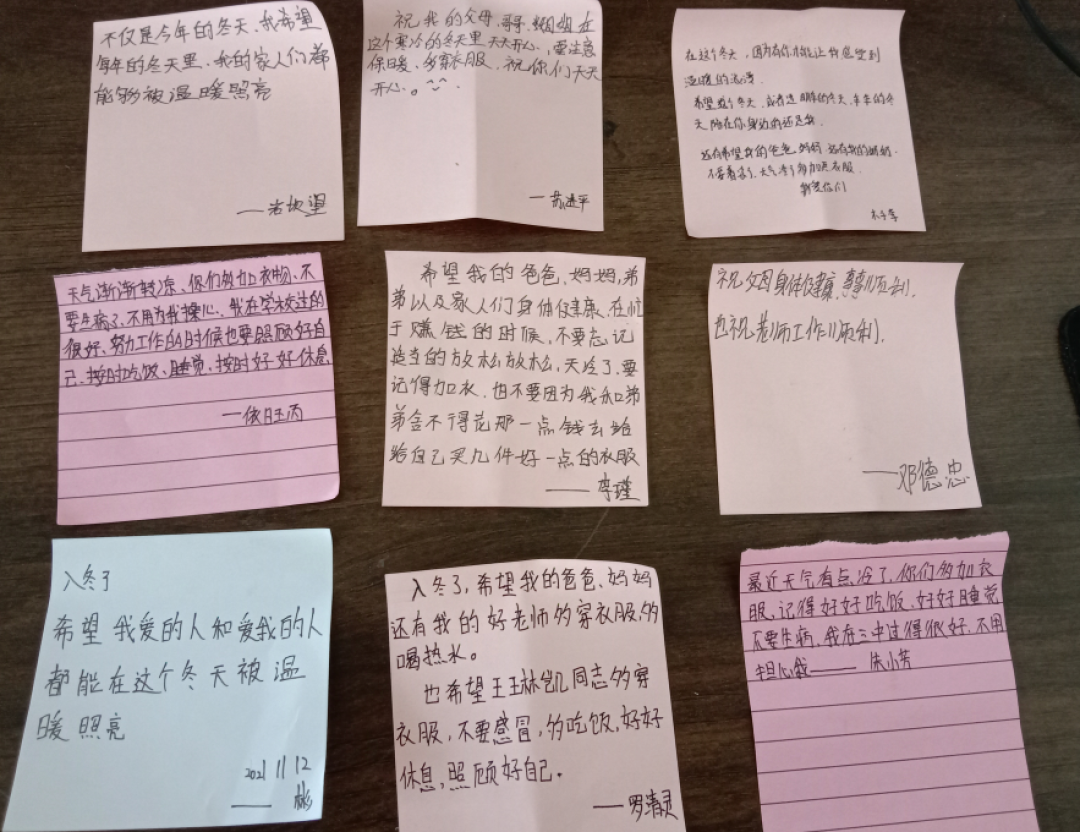 不仅是今年的冬天、我希望
每年的冬天里、我的家人们都
能够被温暖照亮
——岩坎望
祝我的父母、哥哥、姐姐在
这个寒冷的冬天里天天开心、要注意
保暖、多穿衣服、祝你们天天
开心。^-^.
—苏进平
在这个冬天，因为有你才能让我感觉到
温暖的流淌.
希望这个冬天，或者是明年的冬天，未来的冬
天陪在你身边的还是我.
还有希望我的爸爸.妈妈.还有我的奶奶.
不要着凉了.天气冷了多加点衣服.
我爱你们
木子李
天气渐渐转凉、你们多加衣物、不
要生病了、不用为我操心、我在学校过的
很好、努力工作的时候也要照顾好自
己、按时吃饭、睡觉、按时好好休息
—依旺丙
希望我的爸爸、妈妈，弟
弟以及家人们身体健康、在忙
于赚钱的时候，不要忘记
适当的放松放松，天冷了，要
记得加衣，也不要因为我和弟
弟舍不得花那一点钱去给
给自己买几件好一点的衣服
——李瑾
祝父母身体健康，事事顺利.
也祝老师工作顺利.
——邓德忠
入冬了
希望我爱的人和爱我的人
都能在这个冬天被温
暖照亮
2021 11 12
—— 彬
入冬了，希望我的爸爸、妈妈
还有我的好老师多穿衣服，多
喝热水。
也希望王王林凯同志多穿
衣服，不要感冒，多吃饭，好好
休息，照顾好自己。
——罗清灵
最近天气有点冷了，你们多加衣
服，记得好好吃饭、好好睡觉
不要生病，我在三中过得很好，不用
担心我—— 朱小芳